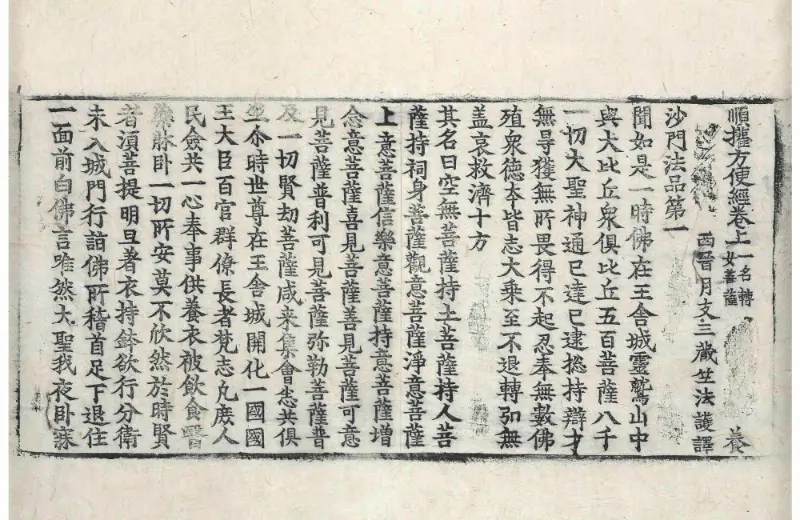 順攉方便經卷上 一名轉女菩薩 養
西晉月支三藏竺法護譯
沙門法品第一
聞如是一時佛在王舍城靈鷲山中
與大比丘眾俱比丘五百菩薩八千
一切大聖神通已達已逮捴持辯才
無㝵獲無所畏得不起忍奉無數佛
殖眾德本皆志大乘至不退轉弘無
盖哀救濟十方
其名曰空無菩薩持土菩薩持人菩
薩持祠身菩薩觀意菩薩淨意菩薩
上意菩薩信樂意菩薩持意菩薩增
念意菩薩喜見菩薩善見菩薩可意
見菩薩普利可見菩薩弥勒菩薩普
及一切賢劫菩薩咸来集會悉共俱
坐尒時世尊在王舍城開化一國國
王大臣百官群僚長者梵志凡庶人
民僉共一心奉事供養衣被飲食醫
藥牀臥一切所安莫不欣然於時賢
者湏菩提明旦著衣持鉢欲行分衛
未入城門行詣佛所稽首足下退住
一面前白佛言唯然大聖我夜臥寐